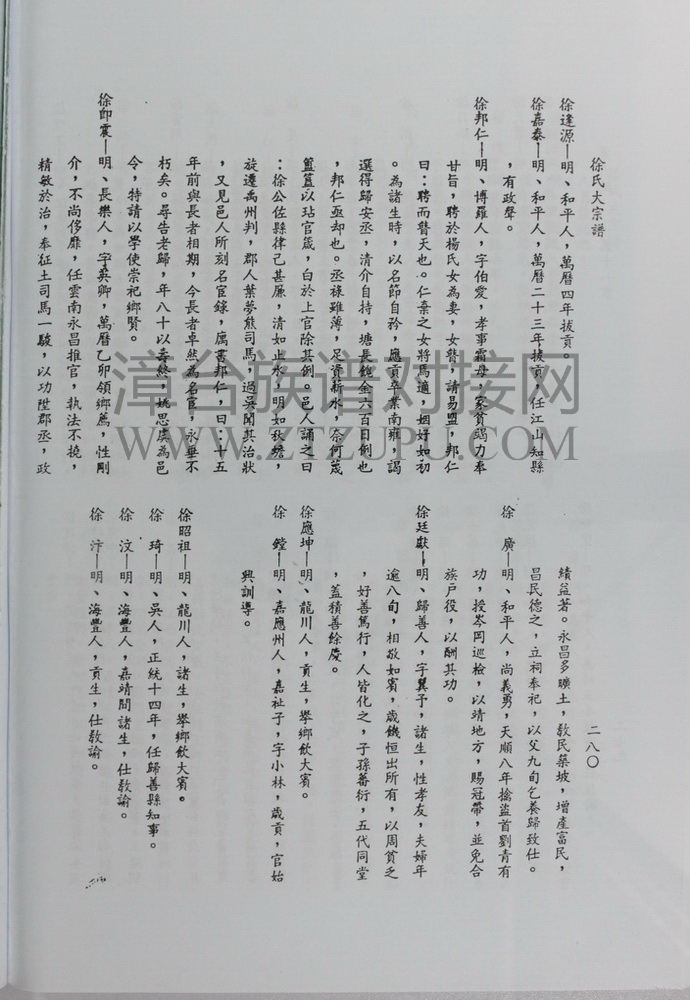 徐氏大宗譜
徐逢源—明、和平人，萬曆四年拔貢。
徐嘉泰—明、和平人，萬曆二十三年拔貢，任江山知縣
，有政聲。
徐邦仁—明、博羅人，字伯愛，孝事霜母，家貧竭力奉
甘旨，聘於楊氏女為妻，女瞽，請易盟，邦仁
曰：聘而瞽天也。仁棄之女將焉適，姻好如初
。為諸生時，以名節自矜，應貢卒業南雍，謁
選得歸安丞，清介自持，塘長餽金六百日例也
，邦仁亟却也。丞祿雖薄，足資薪水，奈何蔑
簠簋以玷官箴，白於上官除其例。邑人誦之曰
：徐公佐縣律己甚廉，清如止水，明如秋蟾，
旋遷禹州判，郡人葉夢熊司馬，過吳聞其治狀
，又見邑人所刻名宦錄，厲書邦仁，曰：十五
年前與長者相期，今長者卓然為名宦，永垂不
朽矣。尋告老歸，年八十以壽終，姚思虞為邑
令，特請以學使崇祀鄉賢。
徐印震—明、長樂人，字英卿，萬曆乙卯領鄉薦，性剛
介，不尚侈靡，任雲南永昌推官，執法不撓，
精敏於治，奉征土司馬一駿，以功陞郡丞，政
績益著。永昌多曠土，教民築坡，增產富民，
昌民德之，立祠奉祀，以父九旬乞養歸致仕。
徐　廣—明、和平人，尚義勇，天順八年擒盜首劉青有
功，授岑岡巡檢，以靖地方，賜冠帶，並免合
族戶役，以酬其功。
徐廷獻—明、歸善人，字翼予，諸生，性孝友，夫婦年
逾八旬，相敬如賓，歲饑恒出所有，以周貧乏
，好善篤行，人皆化之，子孫蕃衍，五代同堂
，蓋積善餘慶。
徐應坤—明、龍川人，貢生，舉鄉飲大賓。
徐　鏜—明、嘉應州人，嘉祉子，字小林，歲貢，官始
興訓導。
徐昭祖—明、龍川人，諸生，舉鄉飲大賓。
徐　琦—明、吳人，正統十四年，任歸善縣知事。
徐　汶—明、海豐人，嘉靖間諸生，仕教諭。
徐　汴—明、海豐人，貢生，仕教諭。
二八〇
漳台族谱对接网
WWW.ZTZUPU.COM